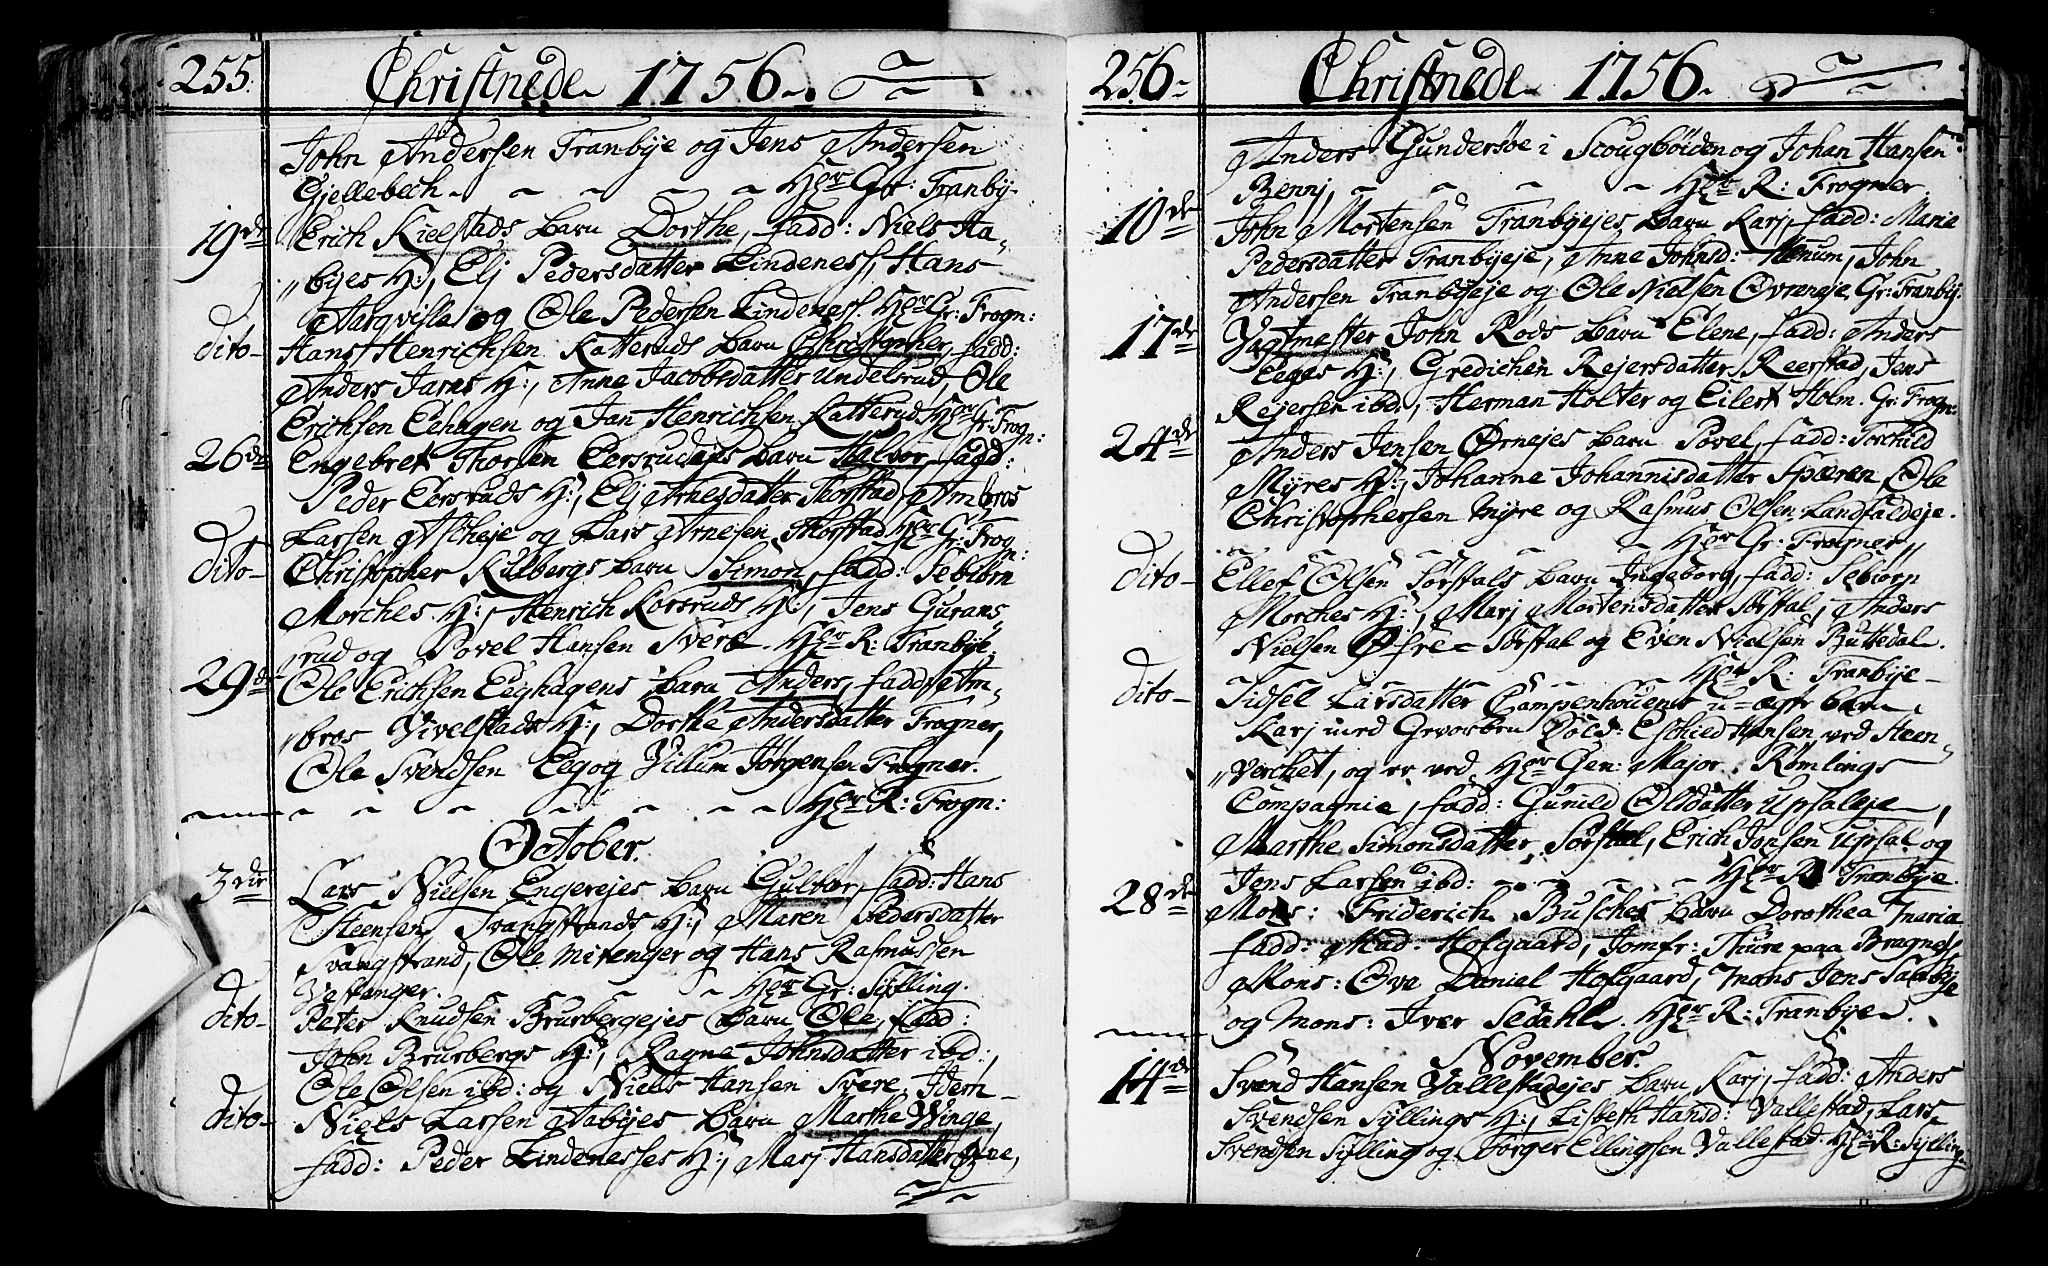 255.
Christnede 1756.
John Andersen Tranbye og Jens Andersen
Gjellebech. Her Gr: Tranby
19de Erich Kielstads barn Dorthe, fadd: Niels Ha-
byes H:, Elj Pedersdatter Lindeness, Hans
Aarqvisle og Ole Pedersen Lindeness. Her Gr: Frogn:
dito Hans Henrichsen Katteruds barn Christopher, fadd:
Anders Jarns H:, Anne Jacobsdatter Undelsrud, Ole
Erichsen Eehagen og Jan Henrichsen Katterud Her Gr: Frogn:
26de Engebret Thorsen Eersrudejes barn Halvor, fadd:
Peder Eersruds H:, Elj Arnesdatter Thorstad, Ambros
Larsen Ascheje og Lars Arnesen Thorstad Her Gr: Frogn:
dito Christopher Kulbergs barn Simon, fadd: Sebiörn
Morches H:, Henrich Korsruds H:, Jens Gurans-
rud og Povel Hansen Svere. Her R: Tranbye.
29de Ole Erichsen Eeghagens barn Anders, fadd: Am-
bros Vivelstads H:, Dorthe Andersdatter Frogner,
Ole Svendsen Eeg og Villum Jörgensen Frogner.
Her R: Frogn:
October.
3die Lars Nielsen Engerejes barn Gulbor, fadd: Hans
Steensen Svangstrands H:, Maren Pedersdatter
Svangstrand, Ole Mitenger og Hans Rasmussen
Vestanger. Her Gr: Sylling.
dito Peter Knudsen Brurbergejes barn Ole fadd:
John Brurbergs H:, Ragne Johnsdatter ibd:,
Ole Olsen ibd: og Niels Hansen Svere. Idem
dito Niels Larsen Aabyes barn Marthe Winge,
fadd: Peder Lindenesses H:, Marj Hansdatter
256
Christnede 1756.
Anders Gundersöe i Scougböiden og Johan Hansen
Bennj, Her R: Frogner.
10de John Mortensen Tranbyejes barn Karj, fadd: Maria
Pedersdatter Tranbyeje, Anne Johnsd: Henum, John
Andersen Tranbyeje og Ole Nielsen Övreneje, Gr: Tranby.
17de Jagtmester John Rods barn Elene, fadd: Anders
Eeges H:, Gredichen Rejersdatter Reerstad, Jens
Rejersen ibd:, Herman Holter og Eilert Holm. Gr: Frogn:
24de Anders Jensen Ornejes barn Povel, fadd: Torchild
Myres H:, Johanne Johannisdatter Spæren, Ole
Christophersen Myre og Rasmus Olsen Landfaldeje.
Her Gr: Frogner,,
dito Ellef Olsen Sørstals barn Ingeborg, fadd: Sebiorn
Morches H:, Marj Mortensdatter Sørstal, Anders
Nielsen Øfre Sørstal og Even Nielsen Buttedal.
Her R: Tranbye
dito Sidsel Larsdatter Campenhouens u-ægte barn
Karj med Gevorben Sold: Eschild Hansen ved Steen-
Verchet, og er ved Her Gen: Major Römlings
Compagnie, fadd: Gunild Olsdatter Upsaleje,
Marthe Simonsdatter Sørstal, Erich Jonsen Upsal og
Jens Larsen ibd: Her R: Tranbye.
28de Mons: Friderich Busches barn Dorothea Maria
fadd: Mad: Holgaard, Jomfr: Thure paa Bragness
Mons: Ove Daniel Holgaard, Mons Jens Saxebye
og Mons: Iver Sedahl. Her R: Tranbye.
November.
14de Svend Hansen Vallestadejes barn Karj, fadd: Anders
Svendsen Syllings H:, Lisbeth Hansd: Vallestad, Lars
Svendsen Sylling og Börger Ellingsen Vallestad. Her R: Sylling